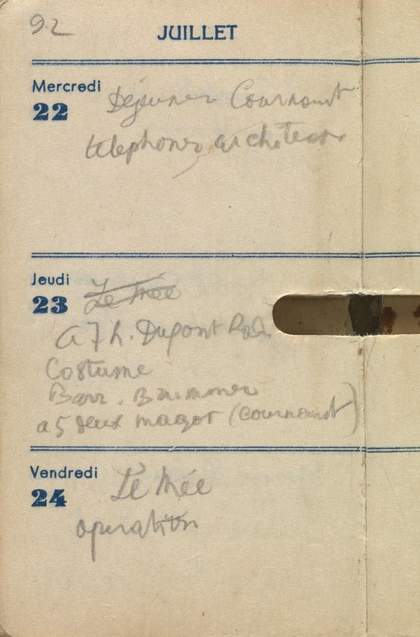 92
JUILLET
Mercredi
22
Déjeuner Cournault
telephoner architecte
Jeudi
23
Le Mée
a 7 h. Dupont
Costume
a 5 deux magot (Cournault)
Vendredi
24
Le Mée
operation